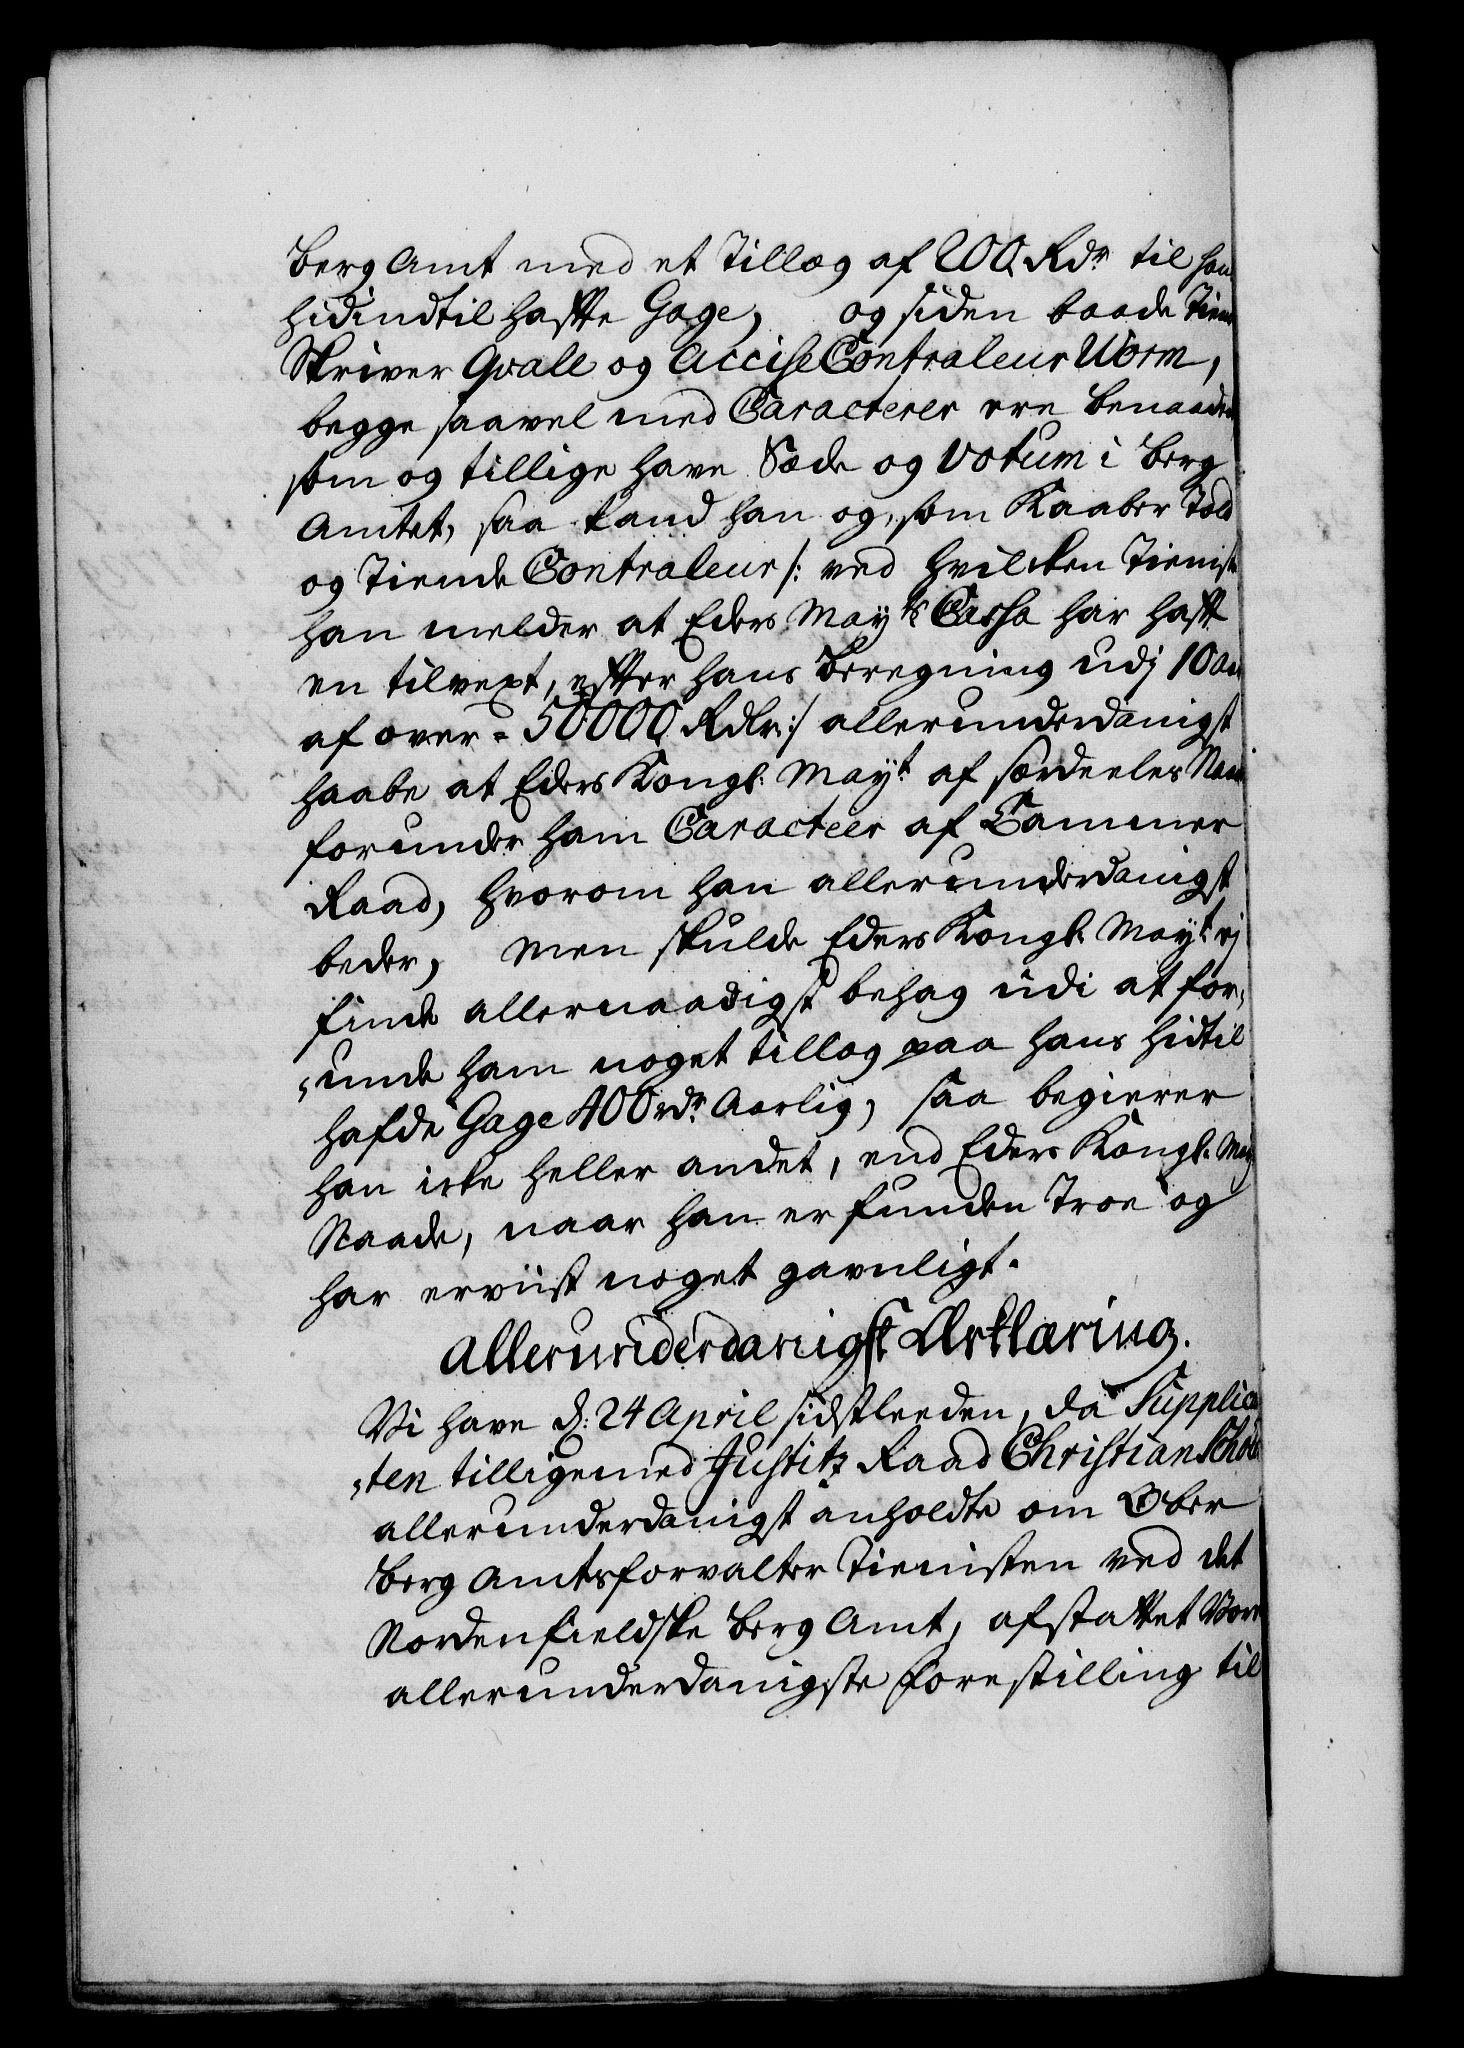 Berg Amt med et Tillæg af 200 Rdr til han
hidindtil haffte Gage, og siden baade Tiend
Skriver Qvale og Accise Contraleur Worm,
begge saavel med Caracterer ere benaaden
som og tillige have Sæde og Votum i Berg
Amtet, saa kand han og, som Kaaber Told
og Tiende Contraleur /: ved hvilcken Tieniste
han melder at Eders Mayts Cassa har hafft
en tilvext, effter hans Beregning udj 10 Aar
af over = 50000 Rdlr :/ allerunderdanigst
haabe at Eders Kongl: Mayt af særdeeles Naad
forunder ham Caracteer af Cammer
Raad, hvorom han allerunderdanigst
beder, Men skulde Eders Kongl: Mayt ej
finde allernaadigst behag udi at for,
,unde ham noget tillæg paa hans hidtil
hafde Gage 400 rdr Aarlig, saa begierer
han icke heller andet, end Eders Kongl: May
Naade, naar han er funden Troe og
har erviist noget gavnligt.
Allerunderdanigst Erklæring.
Vi have d: 24 April sidstleeden, da Supplican
,ten tilligemed Justitz Raad Christian Schol
allerunderdanigst anholdte om Ober
Berg Amtsforvalter Tienisten ved det
Nordenfieldske Berg Amt, afstattet Vore
allerunderdanigste forestilling til